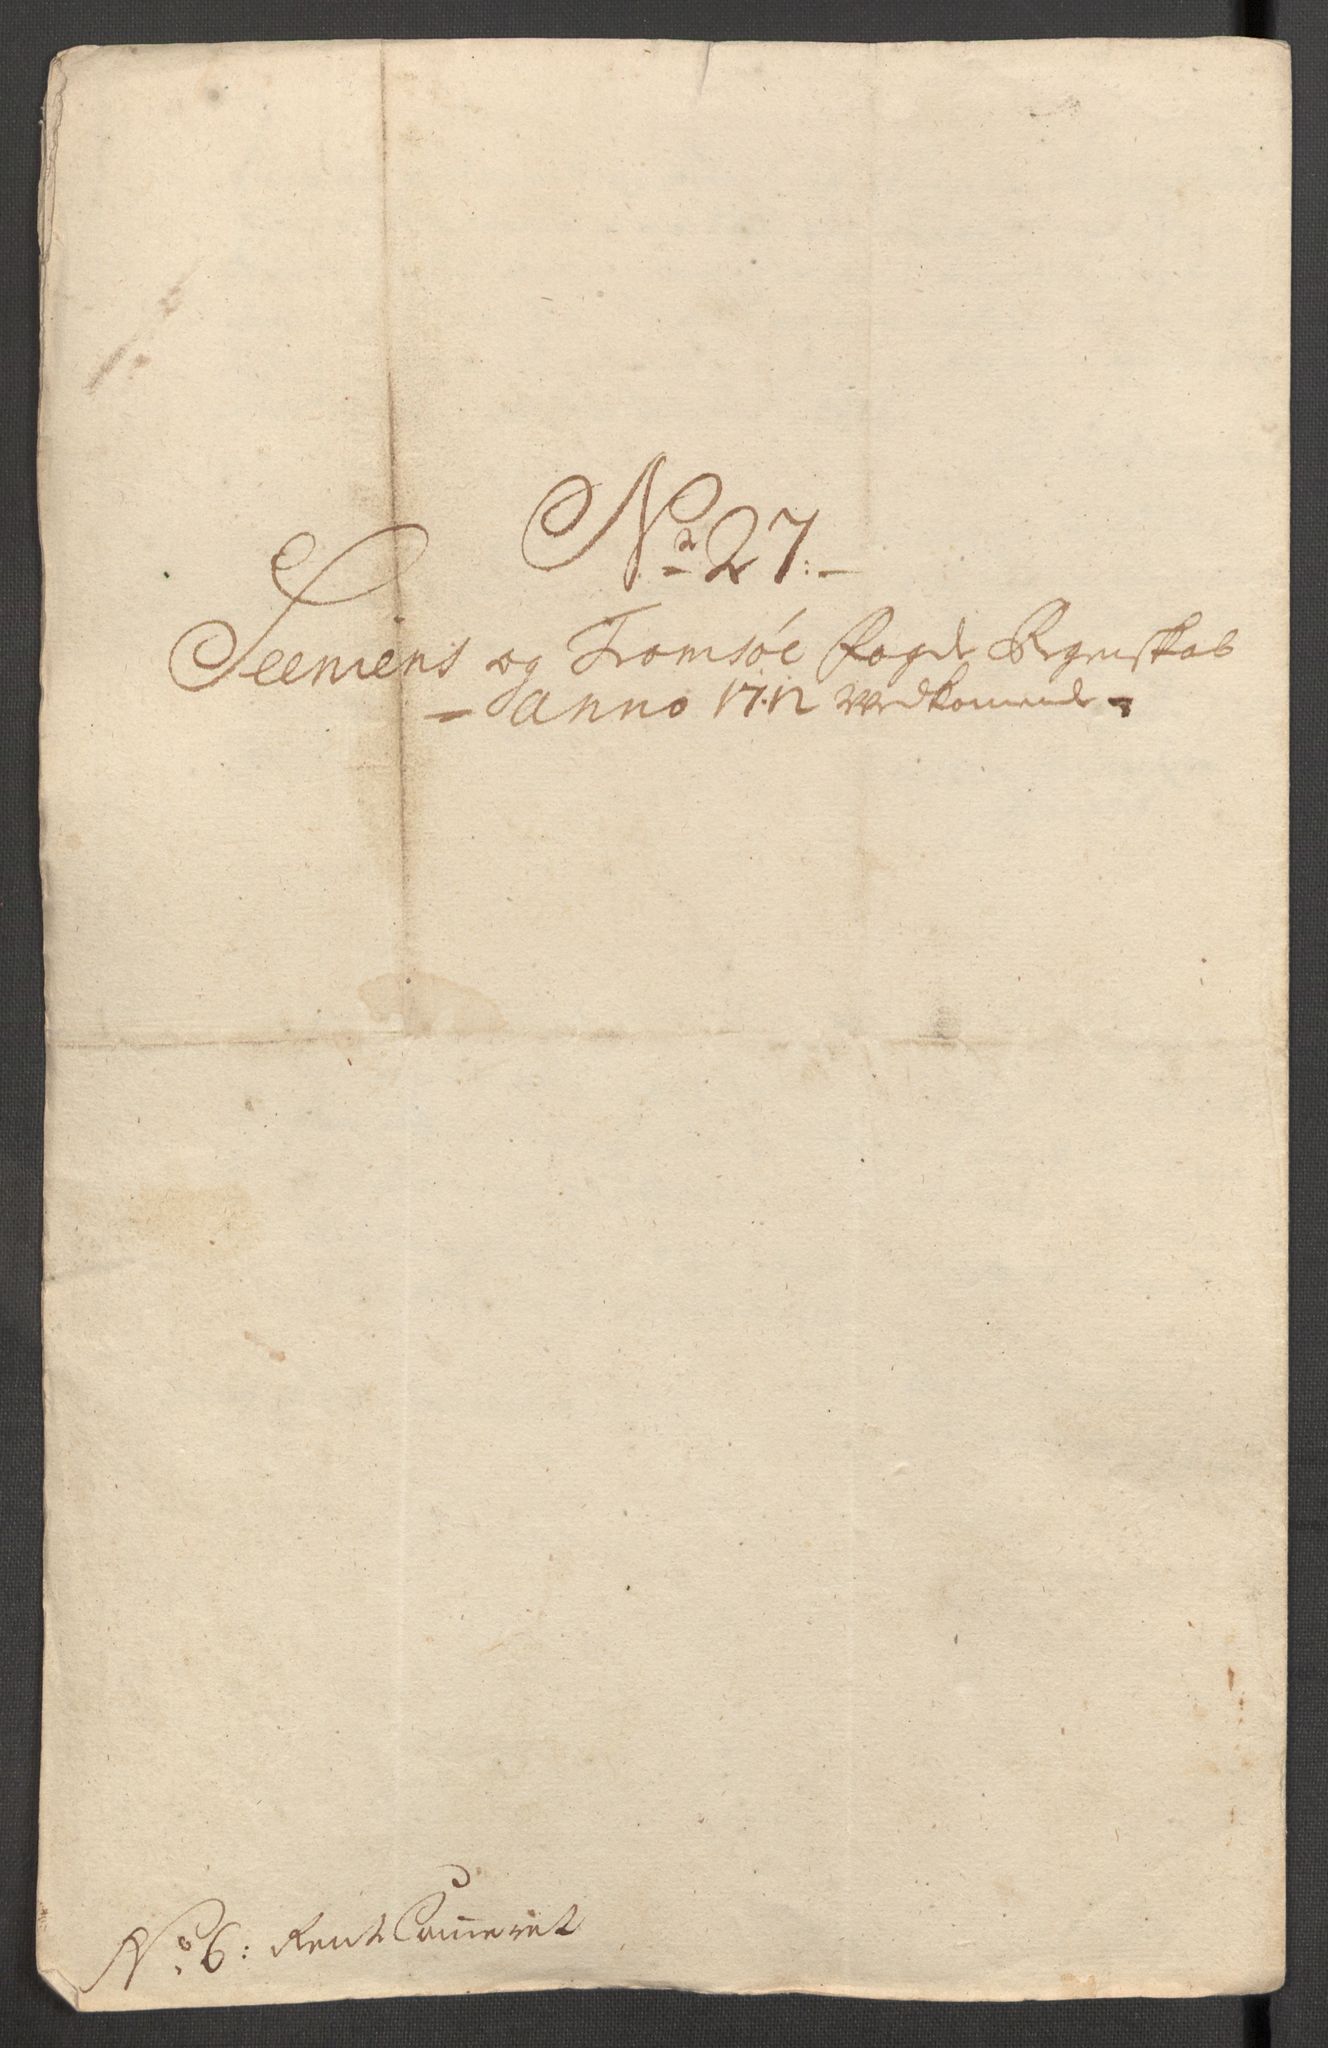 No 27:
Seeniens og Tromsøe fogde Regenskab
Anno 1712 vedkommende
No 6: RentCammeret